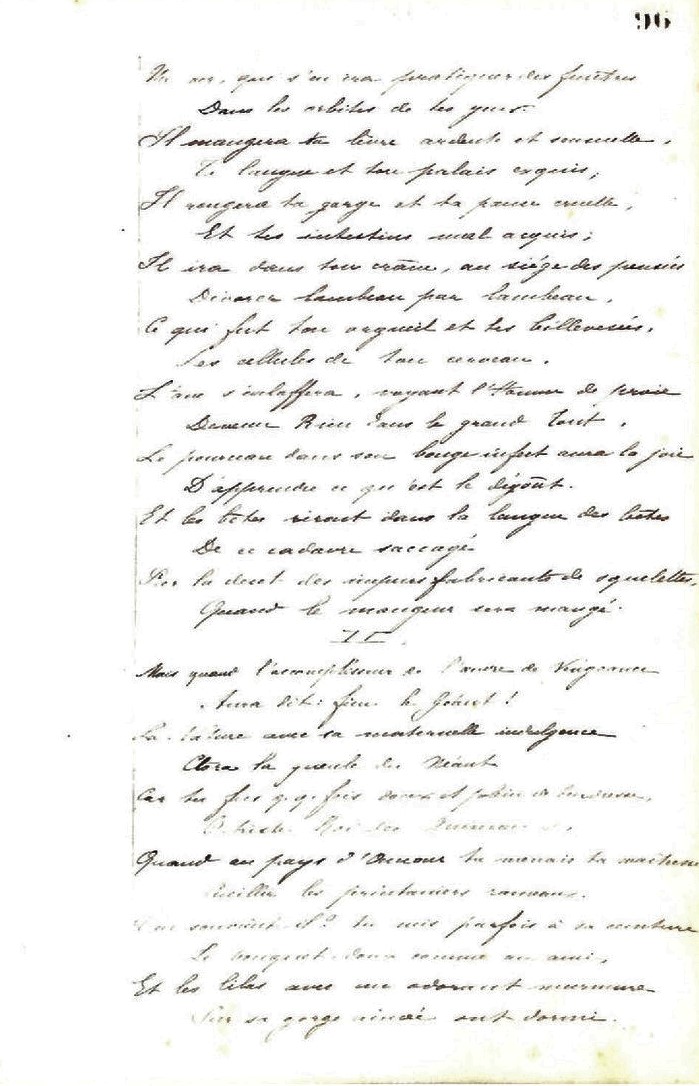 96
Un ver, qui s'en ira pratiquer des fenêtres
Dans les orbites de tes yeux.
Il mangera ta lèvre ardente et sensuelle,
Ta langue et ton palais exquis,
Il rongera ta gorge et ta panse cruelle,
Et tes intestins mal acquis;
Il ira dans ton crâne, au siége des pensées
Dévorer lambeau par lambeau,
Ce qui fut ton orgueil et tes billevesées,
Les cellules de ton cerveau.
L'âne s'esclaffera, voyant l'Homme de proie
Devenu Rien dans le grand Tout,
Le pourceau dans son bouge infect aura la joie
D'apprendre ce qu'est le dégoût.
Et les bêtes riront dans la langue des bêtes
De ce cadavre saccagé
Par la dent des impurs fabricants de squelettes,
Quand le mangeur sera mangé.
II
Mais quand l'accomplisseur de l'œuvre de Vengeance
Aura dit: fini le Géant!
La Nature avec sa maternelle indulgence
Clora la gueule du Néant
Car tu fus qq fois doux et plein de tendresse,
O triste Roi des Animaux,
Quand au pays d'Amour tu menais ta maîtresse
Cueillir les printaniers rameaux.
T'en souvient-il? tu mis parfois à sa ceinture
Le bouquet doux comme un ami,
Et les lilas avec un odorant murmure
Sur sa gorge aimée ont dormi.